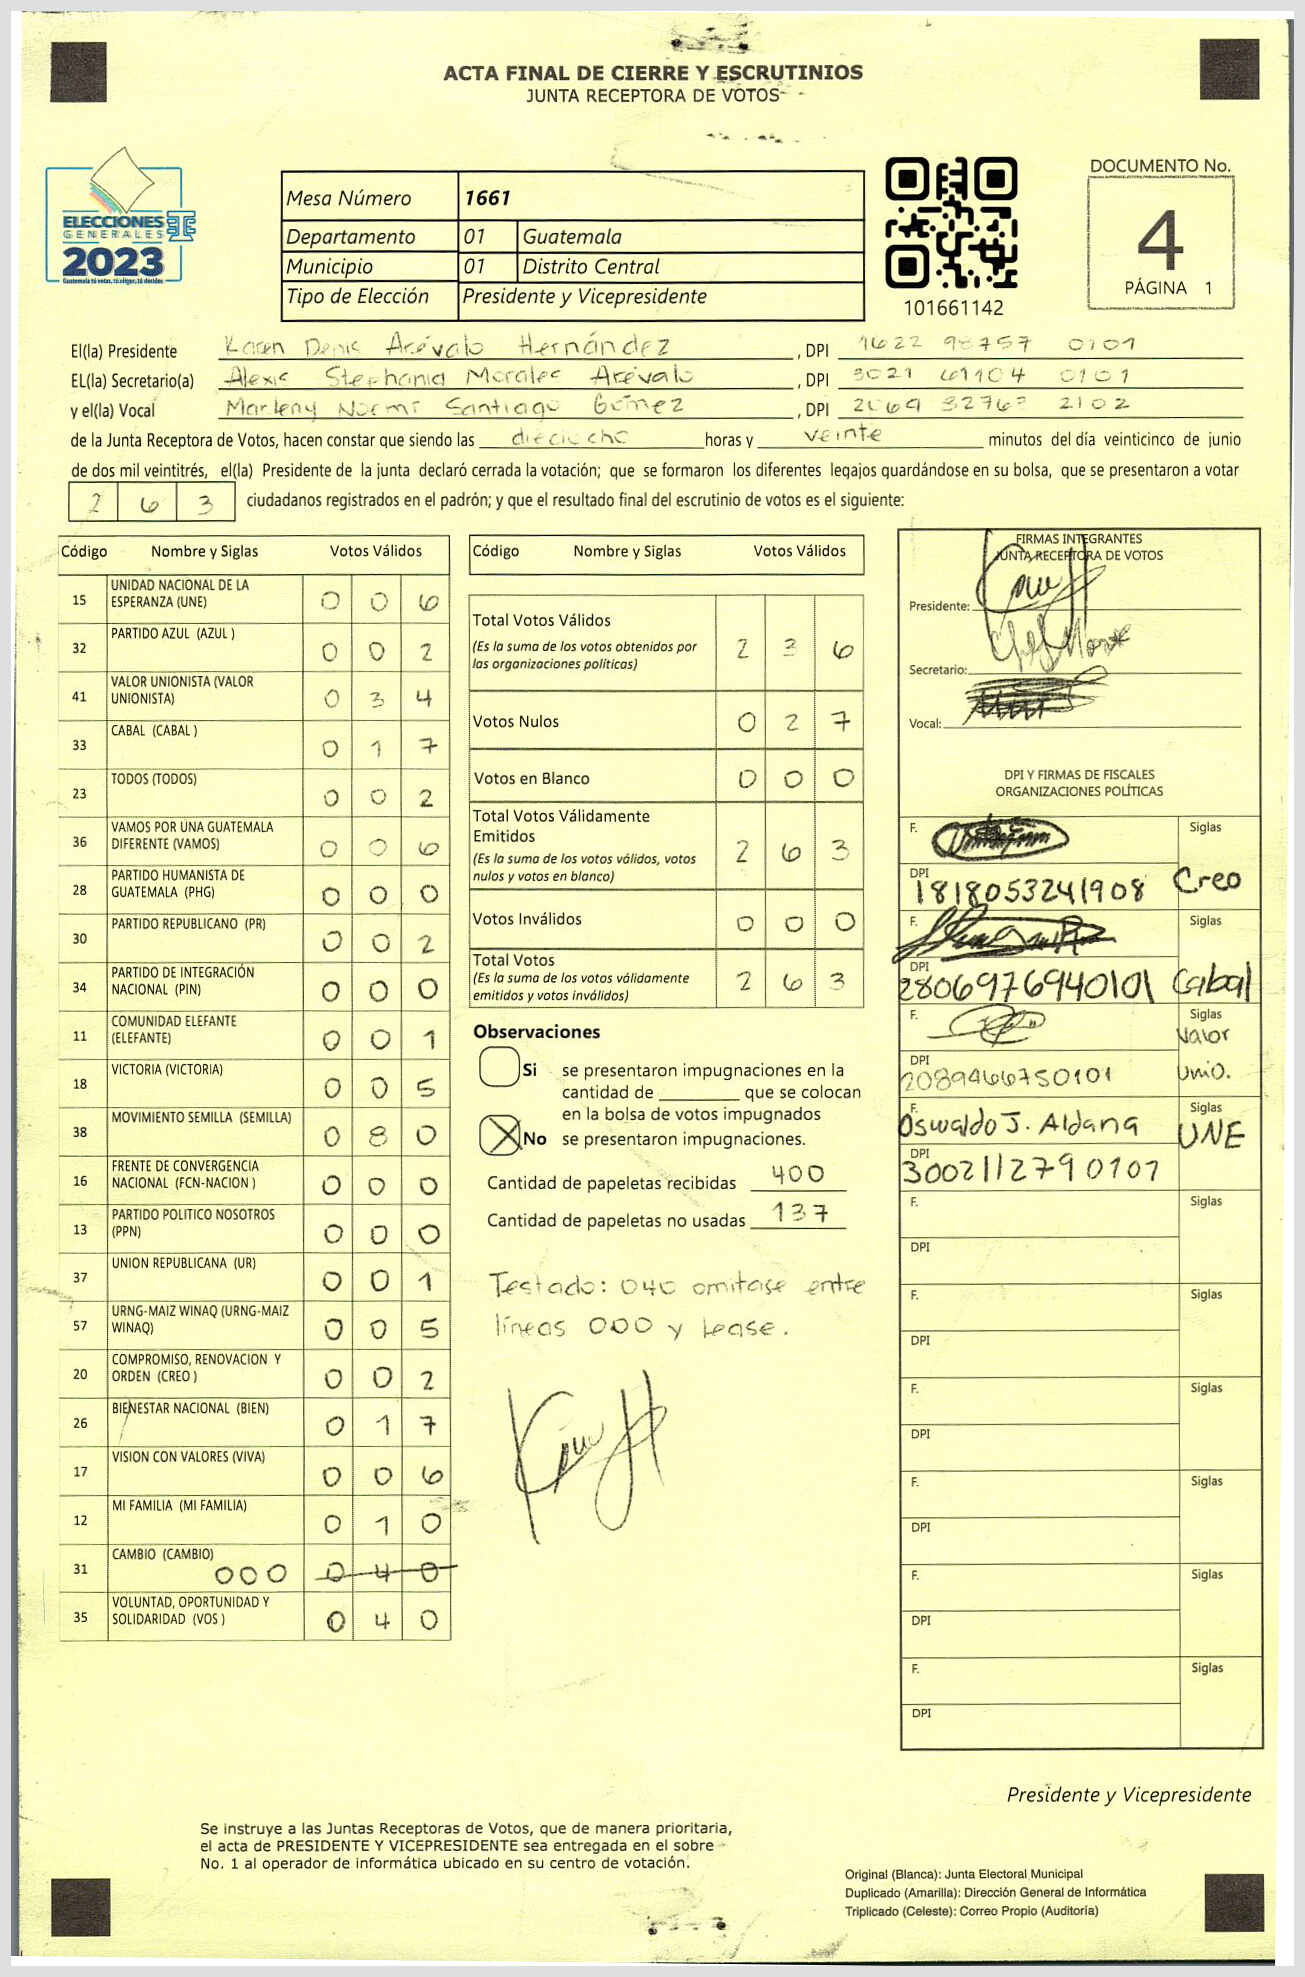 ACTA FINAL DE CIERRE Y ESCRUTINIOS
JUNTA RECEPTORA DE VOTOS
ELECCIONES
GENERALES
2023
Guatemala tú votas, tú eliges, tú decides
Mesa Número 1661
Departamento 01 Guatemala
Municipio 01 Distrito Central
Tipo de Elección Presidente y Vicepresidente
101661142
DOCUMENTO No.
4
PÁGINA 1
El(la) Presidente Karen Denis Arévalo Hernández, DPI 1622 98757 0101
EL(la) Secretario(a) Alexis Stephania Morales Arévalo, DPI 3021 61104 0101
y el(la) Vocal Marleny Noemi Santiago Gómez, DPI 2069 32762 2102
de la Junta Receptora de Votos, hacen constar que siendo las dieciocho horas y veinte minutos del día veinticinco de junio
de dos mil veintitrés, el(la) Presidente de la junta declaró cerrada la votación; que se formaron los diferentes legajos guardándose en su bolsa, que se presentaron a votar
2 6 3 ciudadanos registrados en el padrón; y que el resultado final del escrutinio de votos es el siguiente:
Código Nombre y Siglas Votos Válidos
15 UNIDAD NACIONAL DE LA ESPERANZA (UNE) 0 0 6
32 PARTIDO AZUL (AZUL ) 0 0 2
41 VALOR UNIONISTA (VALOR UNIONISTA) 0 3 4
33 CABAL (CABAL ) 0 1 7
23 TODOS (TODOS) 0 0 2
36 VAMOS POR UNA GUATEMALA DIFERENTE (VAMOS) 0 0 6
28 PARTIDO HUMANISTA DE GUATEMALA (PHG) 0 0 0
30 PARTIDO REPUBLICANO (PR) 0 0 2
34 PARTIDO DE INTEGRACIÓN NACIONAL (PIN) 0 0 0
11 COMUNIDAD ELEFANTE (ELEFANTE) 0 0 1
18 VICTORIA (VICTORIA) 0 0 5
38 MOVIMIENTO SEMILLA (SEMILLA) 0 8 0
16 FRENTE DE CONVERGENCIA NACIONAL (FCN-NACION ) 0 0 0
13 PARTIDO POLITICO NOSOTROS (PPN) 0 0 0
37 UNION REPUBLICANA (UR) 0 0 1
57 URNG-MAIZ WINAQ (URNG-MAIZ WINAQ) 0 0 5
20 COMPROMISO, RENOVACION Y ORDEN (CREO ) 0 0 2
26 BIENESTAR NACIONAL (BIEN) 0 1 7
17 VISION CON VALORES (VIVA) 0 0 6
12 MI FAMILIA (MI FAMILIA) 0 1 0
31 CAMBIO (CAMBIO) 000 0 4 0
35 VOLUNTAD, OPORTUNIDAD Y SOLIDARIDAD (VOS ) 0 4 0
Código Nombre y Siglas Votos Válidos
Total Votos Válidos 2 3 6
(Es la suma de los votos obtenidos por
las organizaciones políticas)
Votos Nulos 0 2 7
Votos en Blanco 0 0 0
Total Votos Válidamente
Emitidos 2 6 3
(Es la suma de los votos válidos, votos
nulos y votos en blanco)
Votos Inválidos 0 0 0
Total Votos 2 6 3
(Es la suma de los votos válidamente
emitidos y votos inválidos)
Observaciones
Si se presentaron impugnaciones en la
cantidad de ________ que se colocan
en la bolsa de votos impugnados
No se presentaron impugnaciones.
Cantidad de papeletas recibidas 400
Cantidad de papeletas no usadas 137
Testado: 040 omitase entre
líneas 000 y Lease.
FIRMAS INTEGRANTES
JUNTA RECEPTORA DE VOTOS
Presidente:
Secretario:
Vocal:
DPI Y FIRMAS DE FISCALES
ORGANIZACIONES POLÍTICAS
F. Siglas
DPI 1818053241908 Creo
F. Siglas
DPI 2806976940101 Cabal
F. Siglas
Valor
DPI 2089466750101 Unio.
F. Oswaldo J. Aldana Siglas
DPI 3002112790101 UNE
F. Siglas
DPI
F. Siglas
DPI
F. Siglas
DPI
F. Siglas
DPI
F. Siglas
DPI
F. Siglas
DPI
Presidente y Vicepresidente
Se instruye a las Juntas Receptoras de Votos, que de manera prioritaria,
el acta de PRESIDENTE Y VICEPRESIDENTE sea entregada en el sobre
No. 1 al operador de informática ubicado en su centro de votación.
Original (Blanca): Junta Electoral Municipal
Duplicado (Amarilla): Dirección General de Informática
Triplicado (Celeste): Correo Propio (Auditoría)